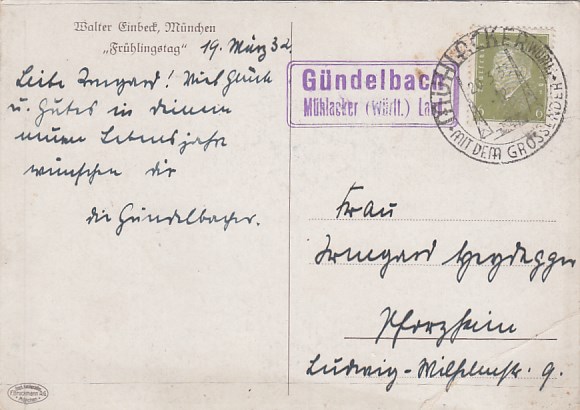 Walter Einbeck, München
„Frühlingstag"
19. März 32.
Liebe Irmgard! Viel Glück
u. Gutes in deinem
neuen Lebensjahre
wünschen dir
die Gündelbacher.
Gündelbach
Mühlacker (Württ.) Land
MÜHLACKER (WÜRTT.)
MIT DEM GROSSENDER
Frau
Irmgard Heydegger
Pforzheim
Ludwig-Wilhelmstr. 9.